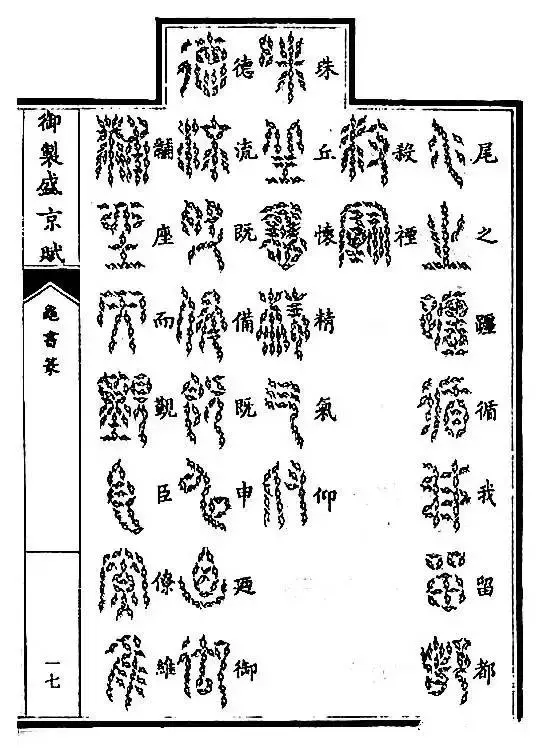 尾之疆循我留都
禋
珠丘懷精氣仰
德流既備既申迺御
黼座而覲臣僚維
御製盛京賦
龜書篆
一七